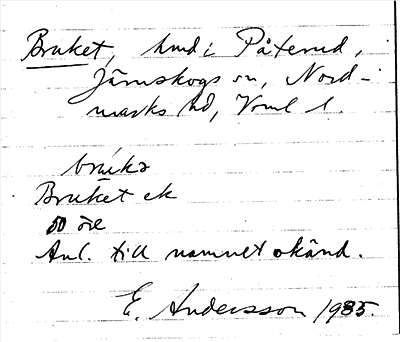 Bruket, hmd i Påterud,
Järnskogs sn, Nord-
marks hd, Vrml l.
bråka
Brukët ek
50 öre
Anl. till namnet okänd.
E. Andersson 1935.